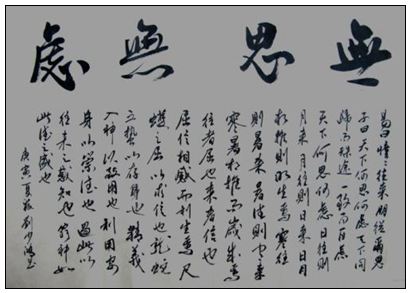 無思無慮
易曰憧憧往來朋從爾思
子曰天下何思何慮天下同
歸而殊途一致而百慮
天下何思何慮日往則
月來月往則日來日月
相推則明生焉寒往
則暑來暑往則寒來
寒暑相推而歲成焉
往者屈也來者信也
屈信相感而利生焉尺
蠖之屈以求信也龍蛇
之蟄以存身也精義
入神以致用也利用安
身以崇德也過此以
往未之或知也窮神知
化德之盛也
庚寅夏 劉